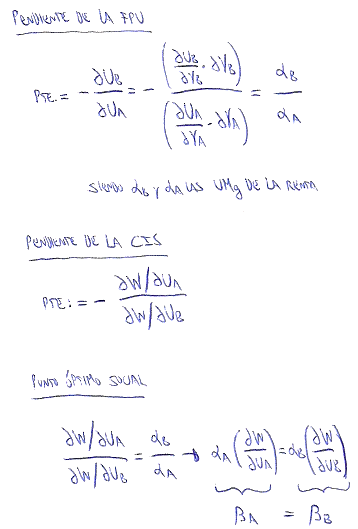 PENDIENTE DE LA FPU
PTE. = - ∂U_B/∂U_A = - (∂U_B/∂Y_B · ∂Y_B)/(∂U_A/∂Y_A · ∂Y_A) = α_B/α_A
SIENDO α_B y α_A LAS UMg DE LA RENTA
PENDIENTE DE LA CIS
PTE: = - (∂W/∂U_A)/(∂W/∂U_B)
PUNTO ÓPTIMO SOCIAL
(∂W/∂U_A)/(∂W/∂U_B) = α_B/α_A → α_A (∂W/∂U_A) = α_B (∂W/∂U_B)
β_A = β_B